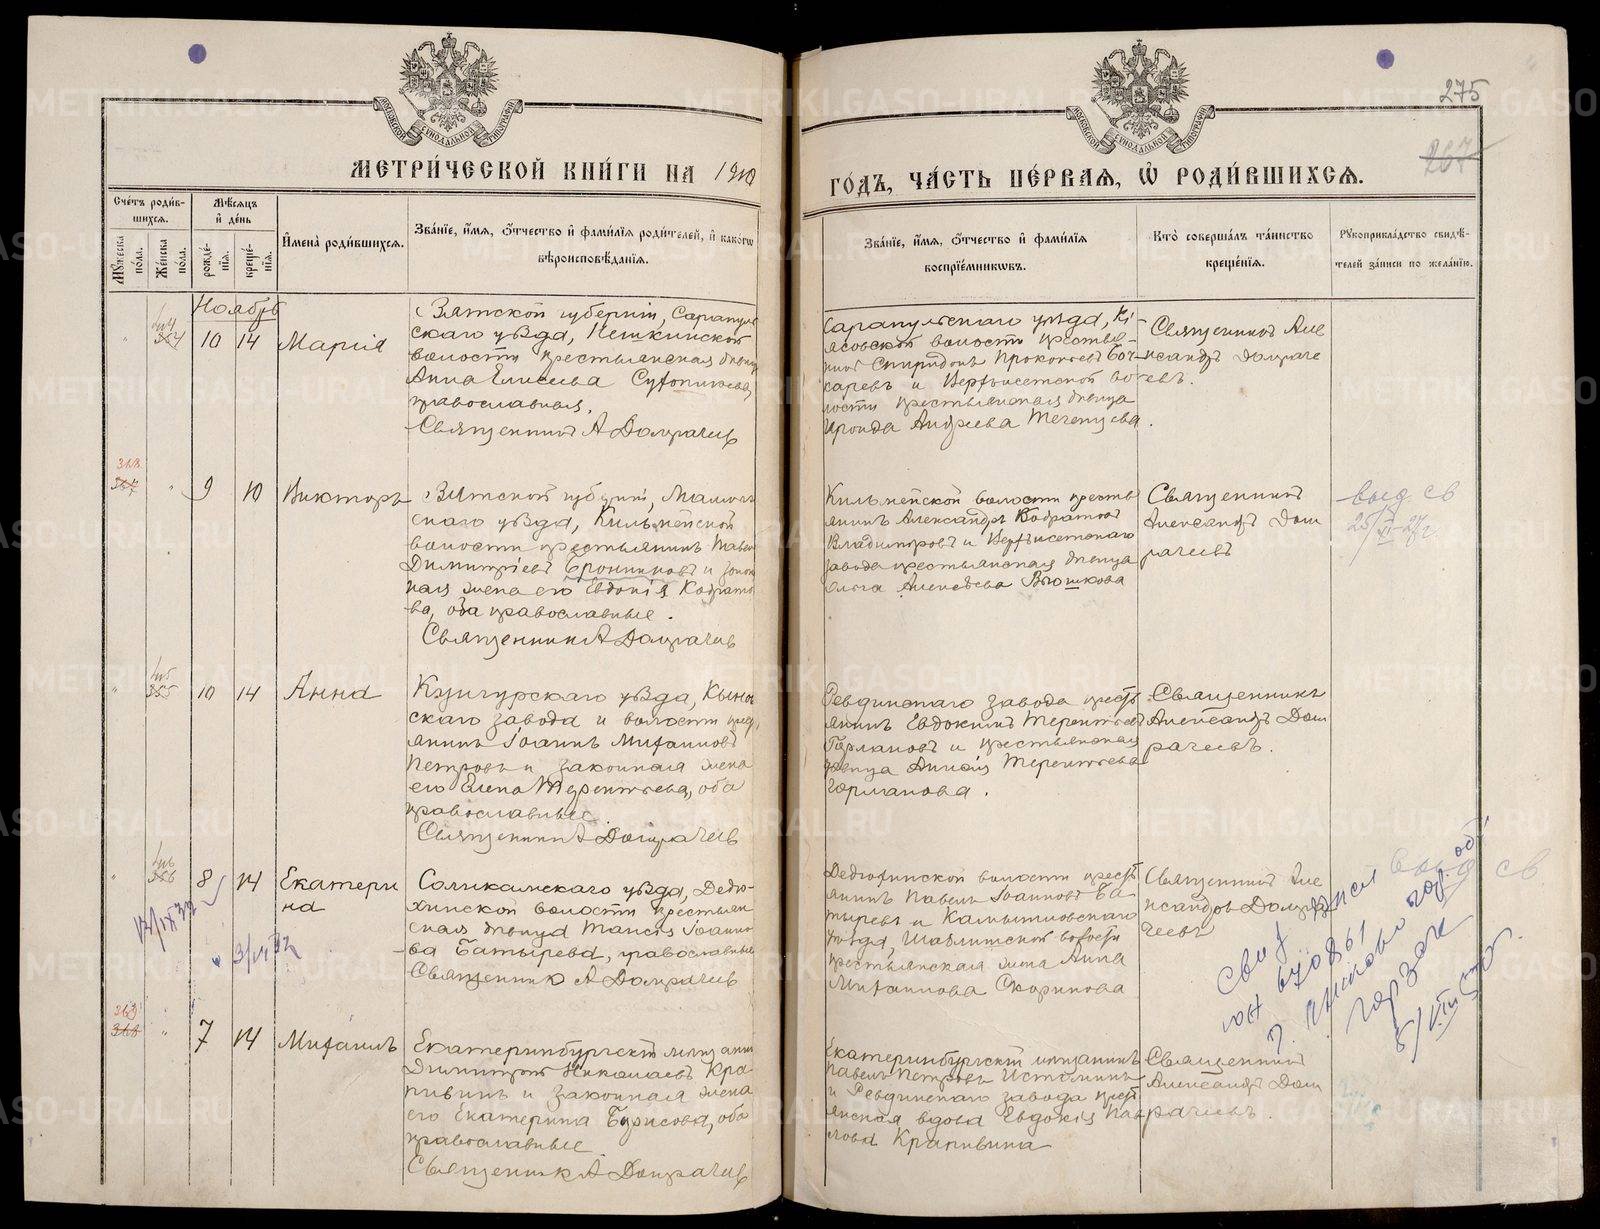 275
267
МОСКОВСКОЙ СѴНОДАЛЬНОЙ ТИПОГРАФІИ
МОСКОВСКОЙ СѴНОДАЛЬНОЙ ТИПОГРАФІИ
МЕТРИ́ЧЕСКОЙ КНИ́ГИ НА 1910
ГО́ДЪ, ЧА́СТЬ ПЕ́РВАЯ, Ѽ РОДИ́ВШИХСЯ.
Сче́тъ роди́в-
шихся.
Мѣ́сяцъ
и҆ де́нь
Мꙋ́жеска
по́ла.
Же́нска
по́ла.
рожде́-
нїя.
креще́-
нїя.
И҆мена̀ роди́вшихся.
Зва́нїе, и҆́мя, ѻ҆́тчество и҆ фами́лїя роди́телей, и҆ како́гѡ
вѣроисповѣ́данїя.
Зва́нїе, и҆́мя, ѻ҆́тчество и҆ фами́лїя
воспрїе́мникѡвъ.
Кто̀ соверша́лъ та́инство
креще́нїя.
Рꙋкоприкла́дство свидѣ́-
телей за́писи по жела́нїю.
Ноябрь
354
10 14 Марія
Вятской губерніи, Сарапуль
скаго уѣзда,
волости крестьянская дѣвица
Анна Елисеева
православная.
Священникъ А Домрачевъ
Сарапульскаго уѣзда,
волости крестья-
нинъ Спиридонъ Прокопьевъ Боч-
каревъ и Верхъисетской во
лости крестьянская дѣвица
Андреева
Священникъ Але
ксандръ Домраче
евъ.
368
367
9 10 Викторъ
Вятской губерніи, Малмыж
скаго уѣзда, Кильмезской
волости крестьянинъ Павелъ
Димитріевъ Бронниковъ и закон
ная жена его Евдокія Кондрать
ва, оба православные.
Священникъ А Домрачевъ
Кильмезской волости кресть
янинъ Александръ Кондратовъ
Владимировъ и Верхъисетскаго
завода крестьянская дѣвица
Ольга Алексѣева Вьюшкова
Священникъ
Александръ Дом
рачевъ
выд. св
25/XI-27г.
355
10 14 Анна
Кунгурскаго уѣзда, Кынов
скаго завода и волости крест
янинъ Іоаннъ Михаиловъ
Петровъ и законная жена
его Елена Терентьева, оба
православные
Священникъ А Домрачевъ
Ревдинскаго завода крест
янинъ Евдокимъ Терентьевъ
Гормановъ и крестьянская
дѣвица Анисія Терентьева
Горманова.
Священникъ
Александръ Дом
рачевъ.
356
8 14 Екатери
на
Соликамскаго уѣзда, Дедю-
хинской волости крестьян
ская дѣвица Таисія Іоанно
ва Батырева, православная
Священникъ А Домрачевъ
Дедюхинской волости крест
янинъ Павелъ Іоанновъ Ба
тыревъ и Камышловскаго
уѣзда, волости
крестьянская жена Анна
Михаилова Скорикова
Священникъ Але
ксандръ Домра
чевъ
выд св
369
368
7 14 Михаилъ
Екатеринбургскій мѣщанинъ
Димитрій Николаевъ Кра-
пивинъ и законная жена
его Екатерина Борисова, оба
православные
Священникъ А Домрачевъ
Екатеринбургскій мѣщанинъ
Павелъ Петровъ Истоминъ
и Ревдинскаго завода крест
янская вдова Евдокія Пав
лова Крапивина
Священникъ
Александръ Дом
рачевъ.
METRIKI.GASO-URAL.RU